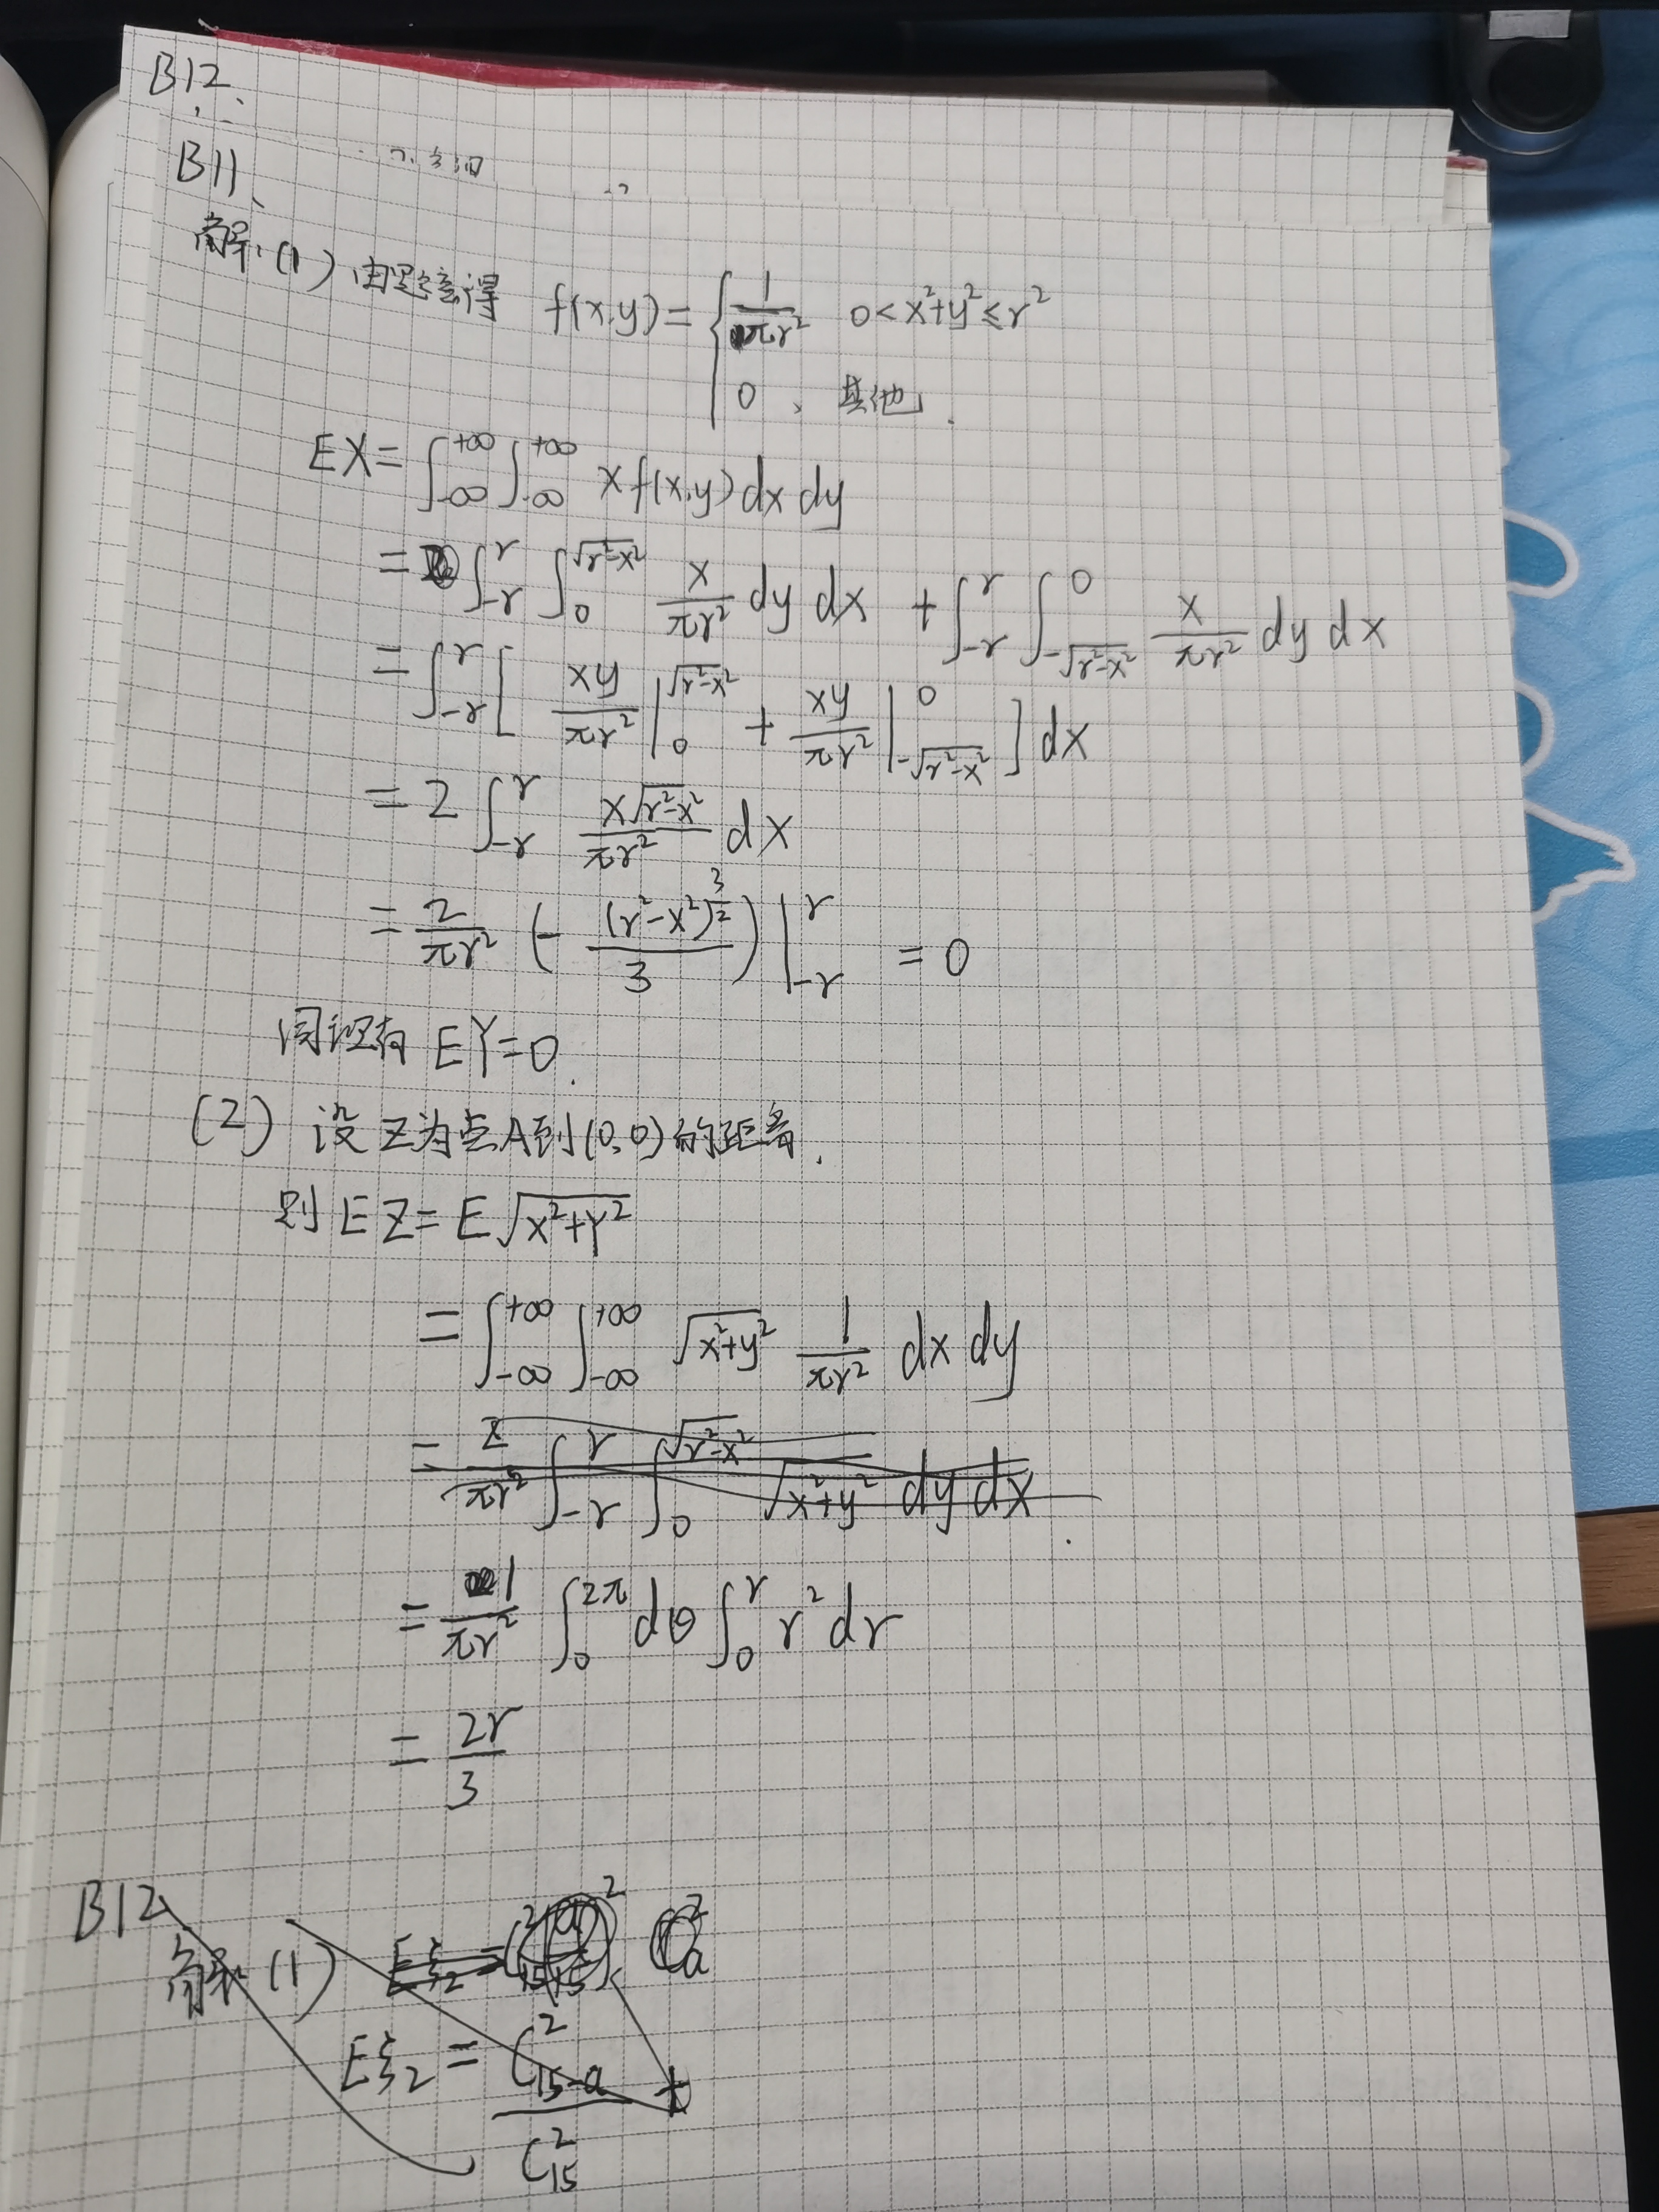 B12.
B11.
解:(1) 由题意得 f(x,y)= { 1/πr² 0<x²+y²≤r²
0 、 其他.
EX=∫_{-∞}^{+∞}∫_{-∞}^{+∞} x f(x,y) dx dy
= ∫_{-r}^{r} ∫_{0}^{√(r²-x²)} x/πr² dy dx + ∫_{-r}^{r} ∫_{-√(r²-x²)}^{0} x/πr² dy dx
= ∫_{-r}^{r} [ xy/πr² |_{0}^{√(r²-x²)} + xy/πr² |_{-√(r²-x²)}^{0} ] dx
= 2 ∫_{-r}^{r} x√(r²-x²)/πr² dx
= 2/πr² (- (r²-x²)^{3/2}/3) |_{-r}^{r} = 0
同理有 EY=0.
(2) 设Z为点A到(0,0)的距离.
则 EZ= E√(X²+Y²)
= ∫_{-∞}^{+∞}∫_{-∞}^{+∞} √(x²+y²) 1/πr² dx dy
= 2/πr² ∫_{-r}^{r} ∫_{0}^{√(r²-x²)} √(x²+y²) dy dx
= 1/πr² ∫_{0}^{2π} dθ ∫_{0}^{r} r² dr
= 2r/3
B12
解: (1) Eξ₂ =
Eξ₂ = C²_{15-a} / C²_{15} +